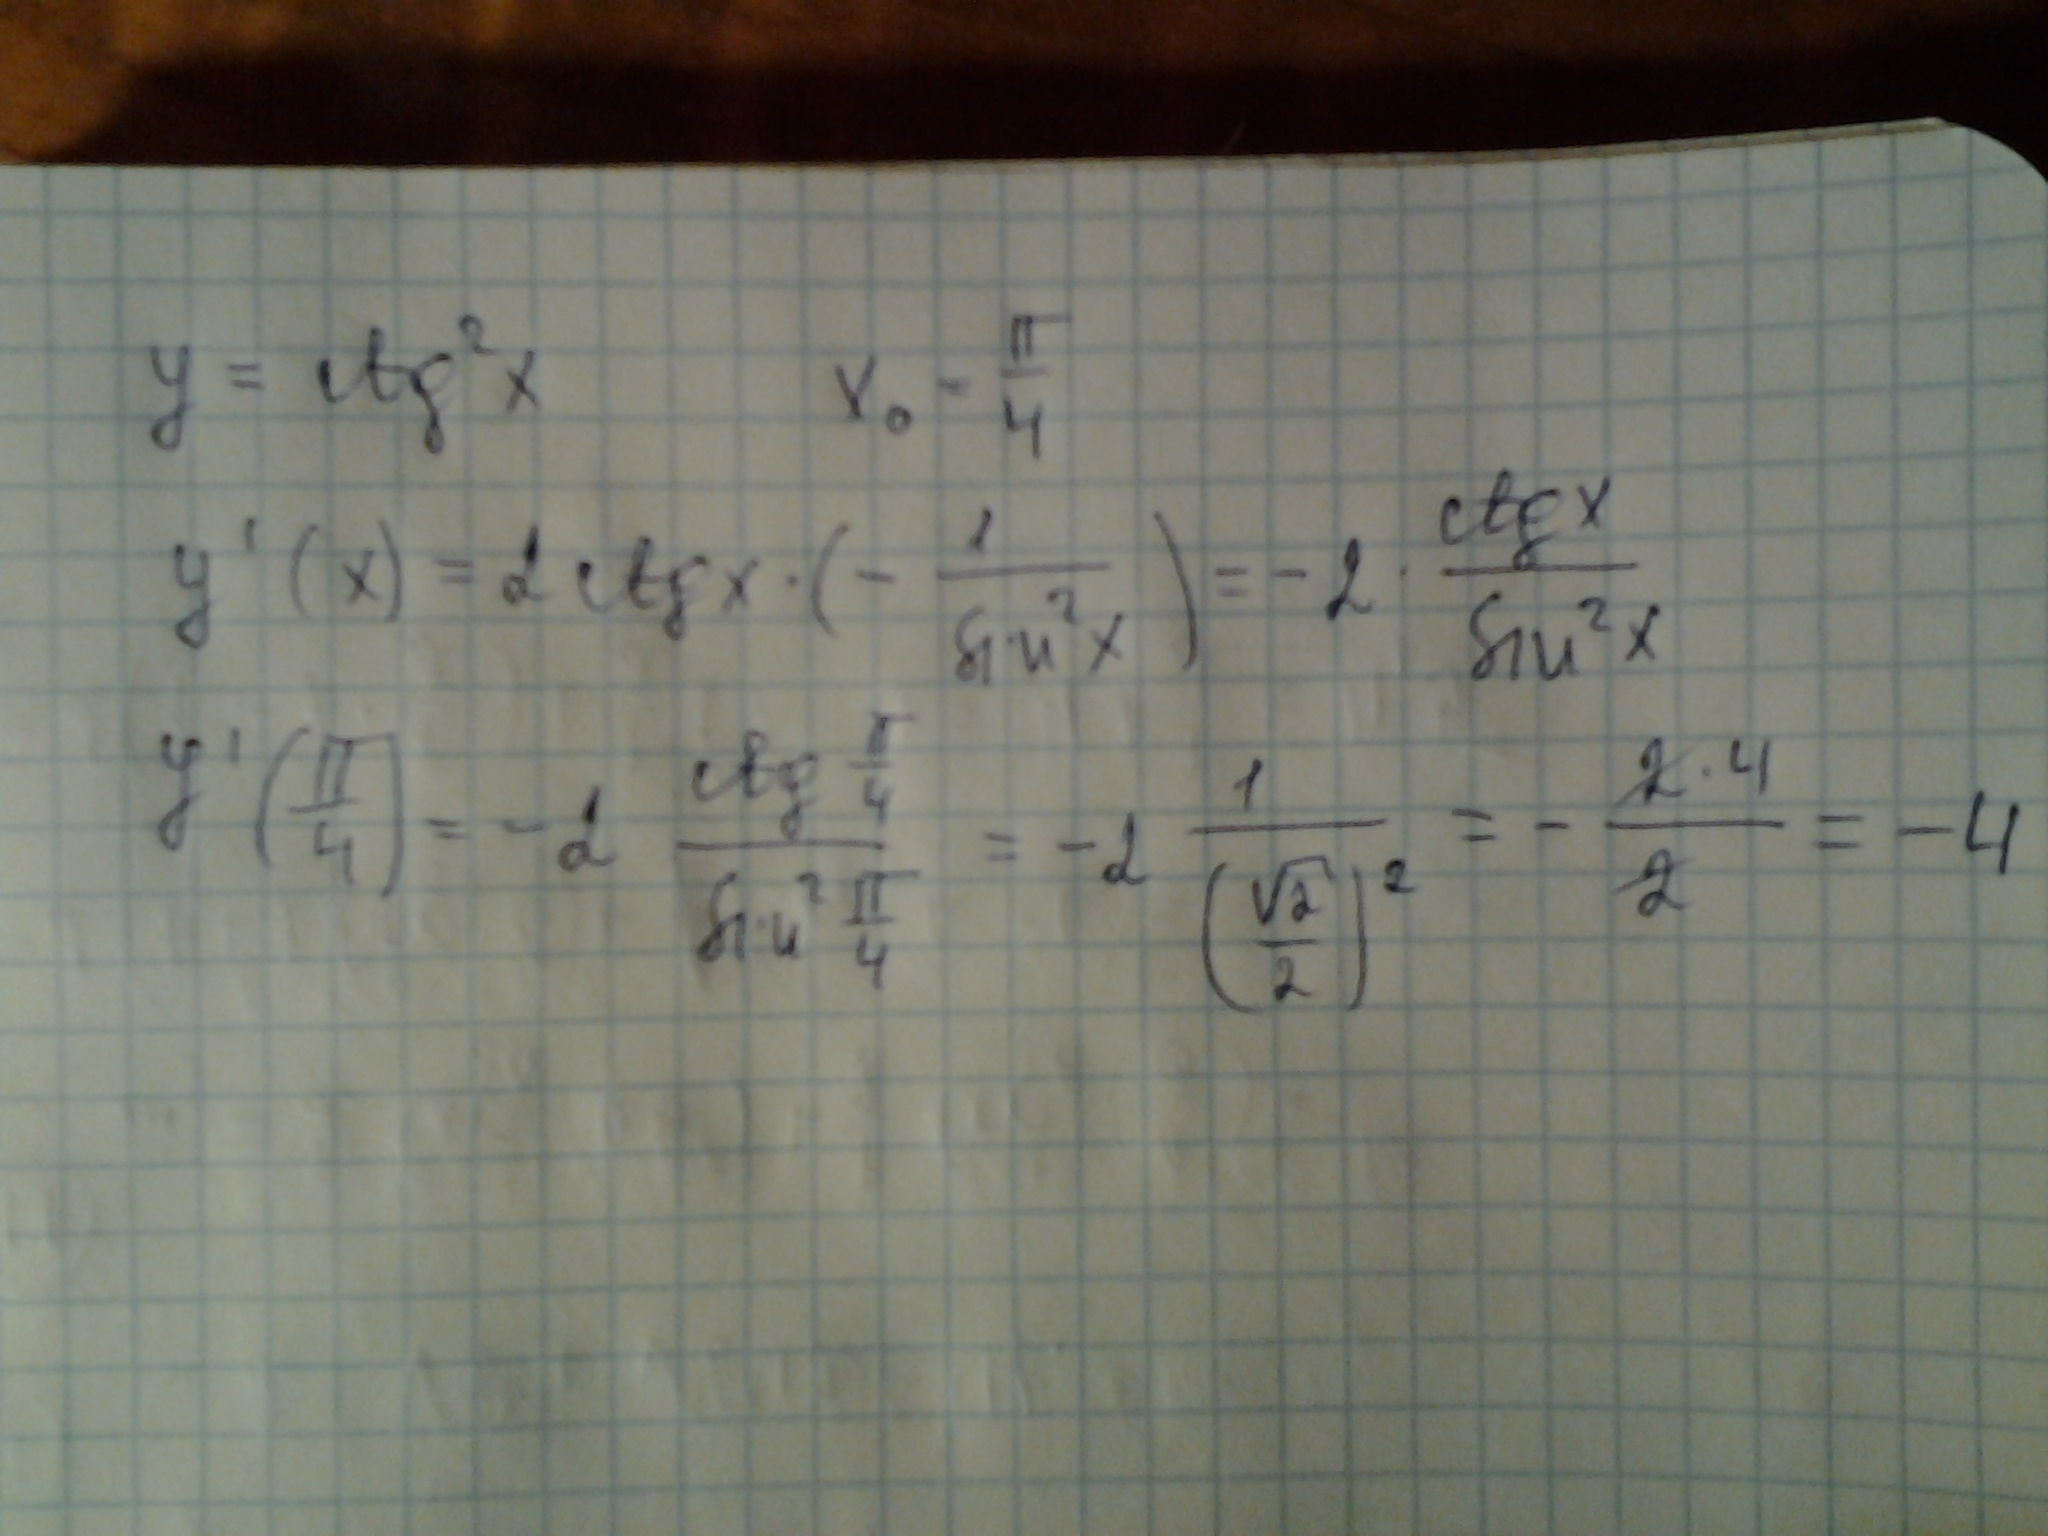 y = ctg²x x₀ = π/4
y'(x) = 2 ctg x · (− 1/sin²x) = −2 · ctg x/sin²x
y'(π/4) = −2 ctg π/4 / sin² π/4 = −2 1/(√2/2)² = − 2·4/2 = −4